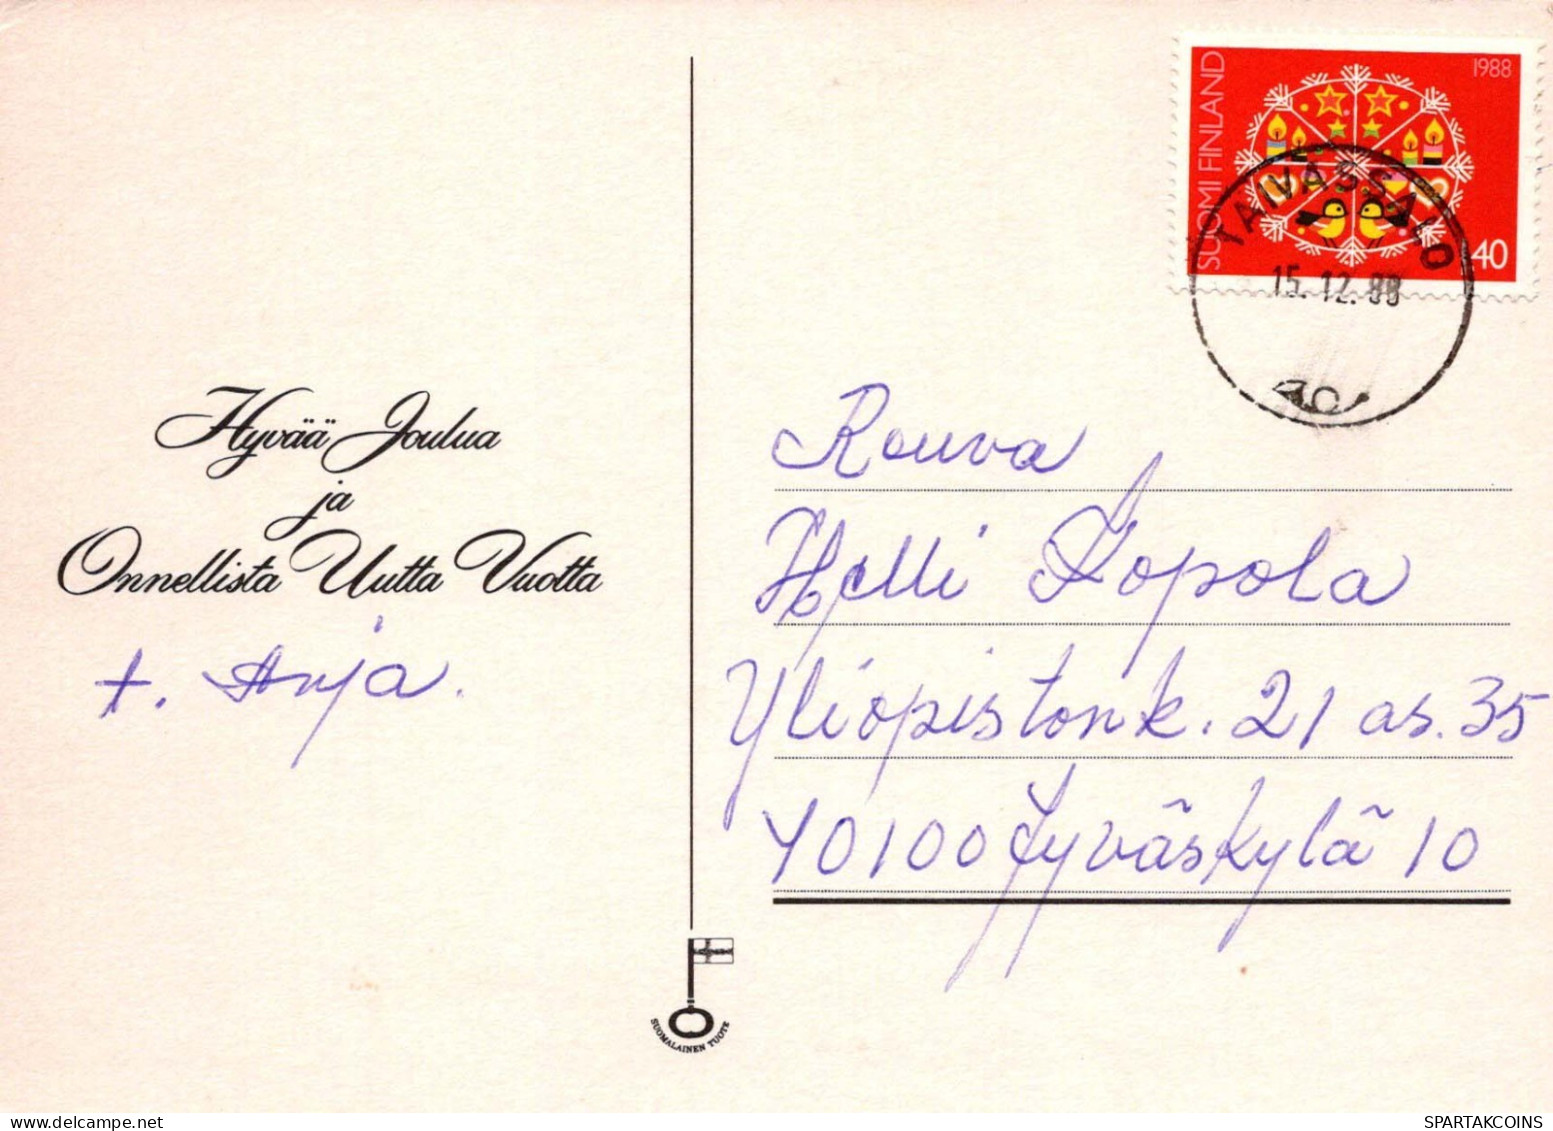 Hyvää Joulua
ja
Onnellista Uutta Vuotta
t. Anja.
SUOMI FINLAND
1988
40
TAIVASSALO
15.12.88
Rouva
Helli Kopola
Yliopistonk. 21 as. 35
40100 Jyväskylä 10
SUOMALAINEN TUOTE
delcampe.net
SPARTAKCOINS